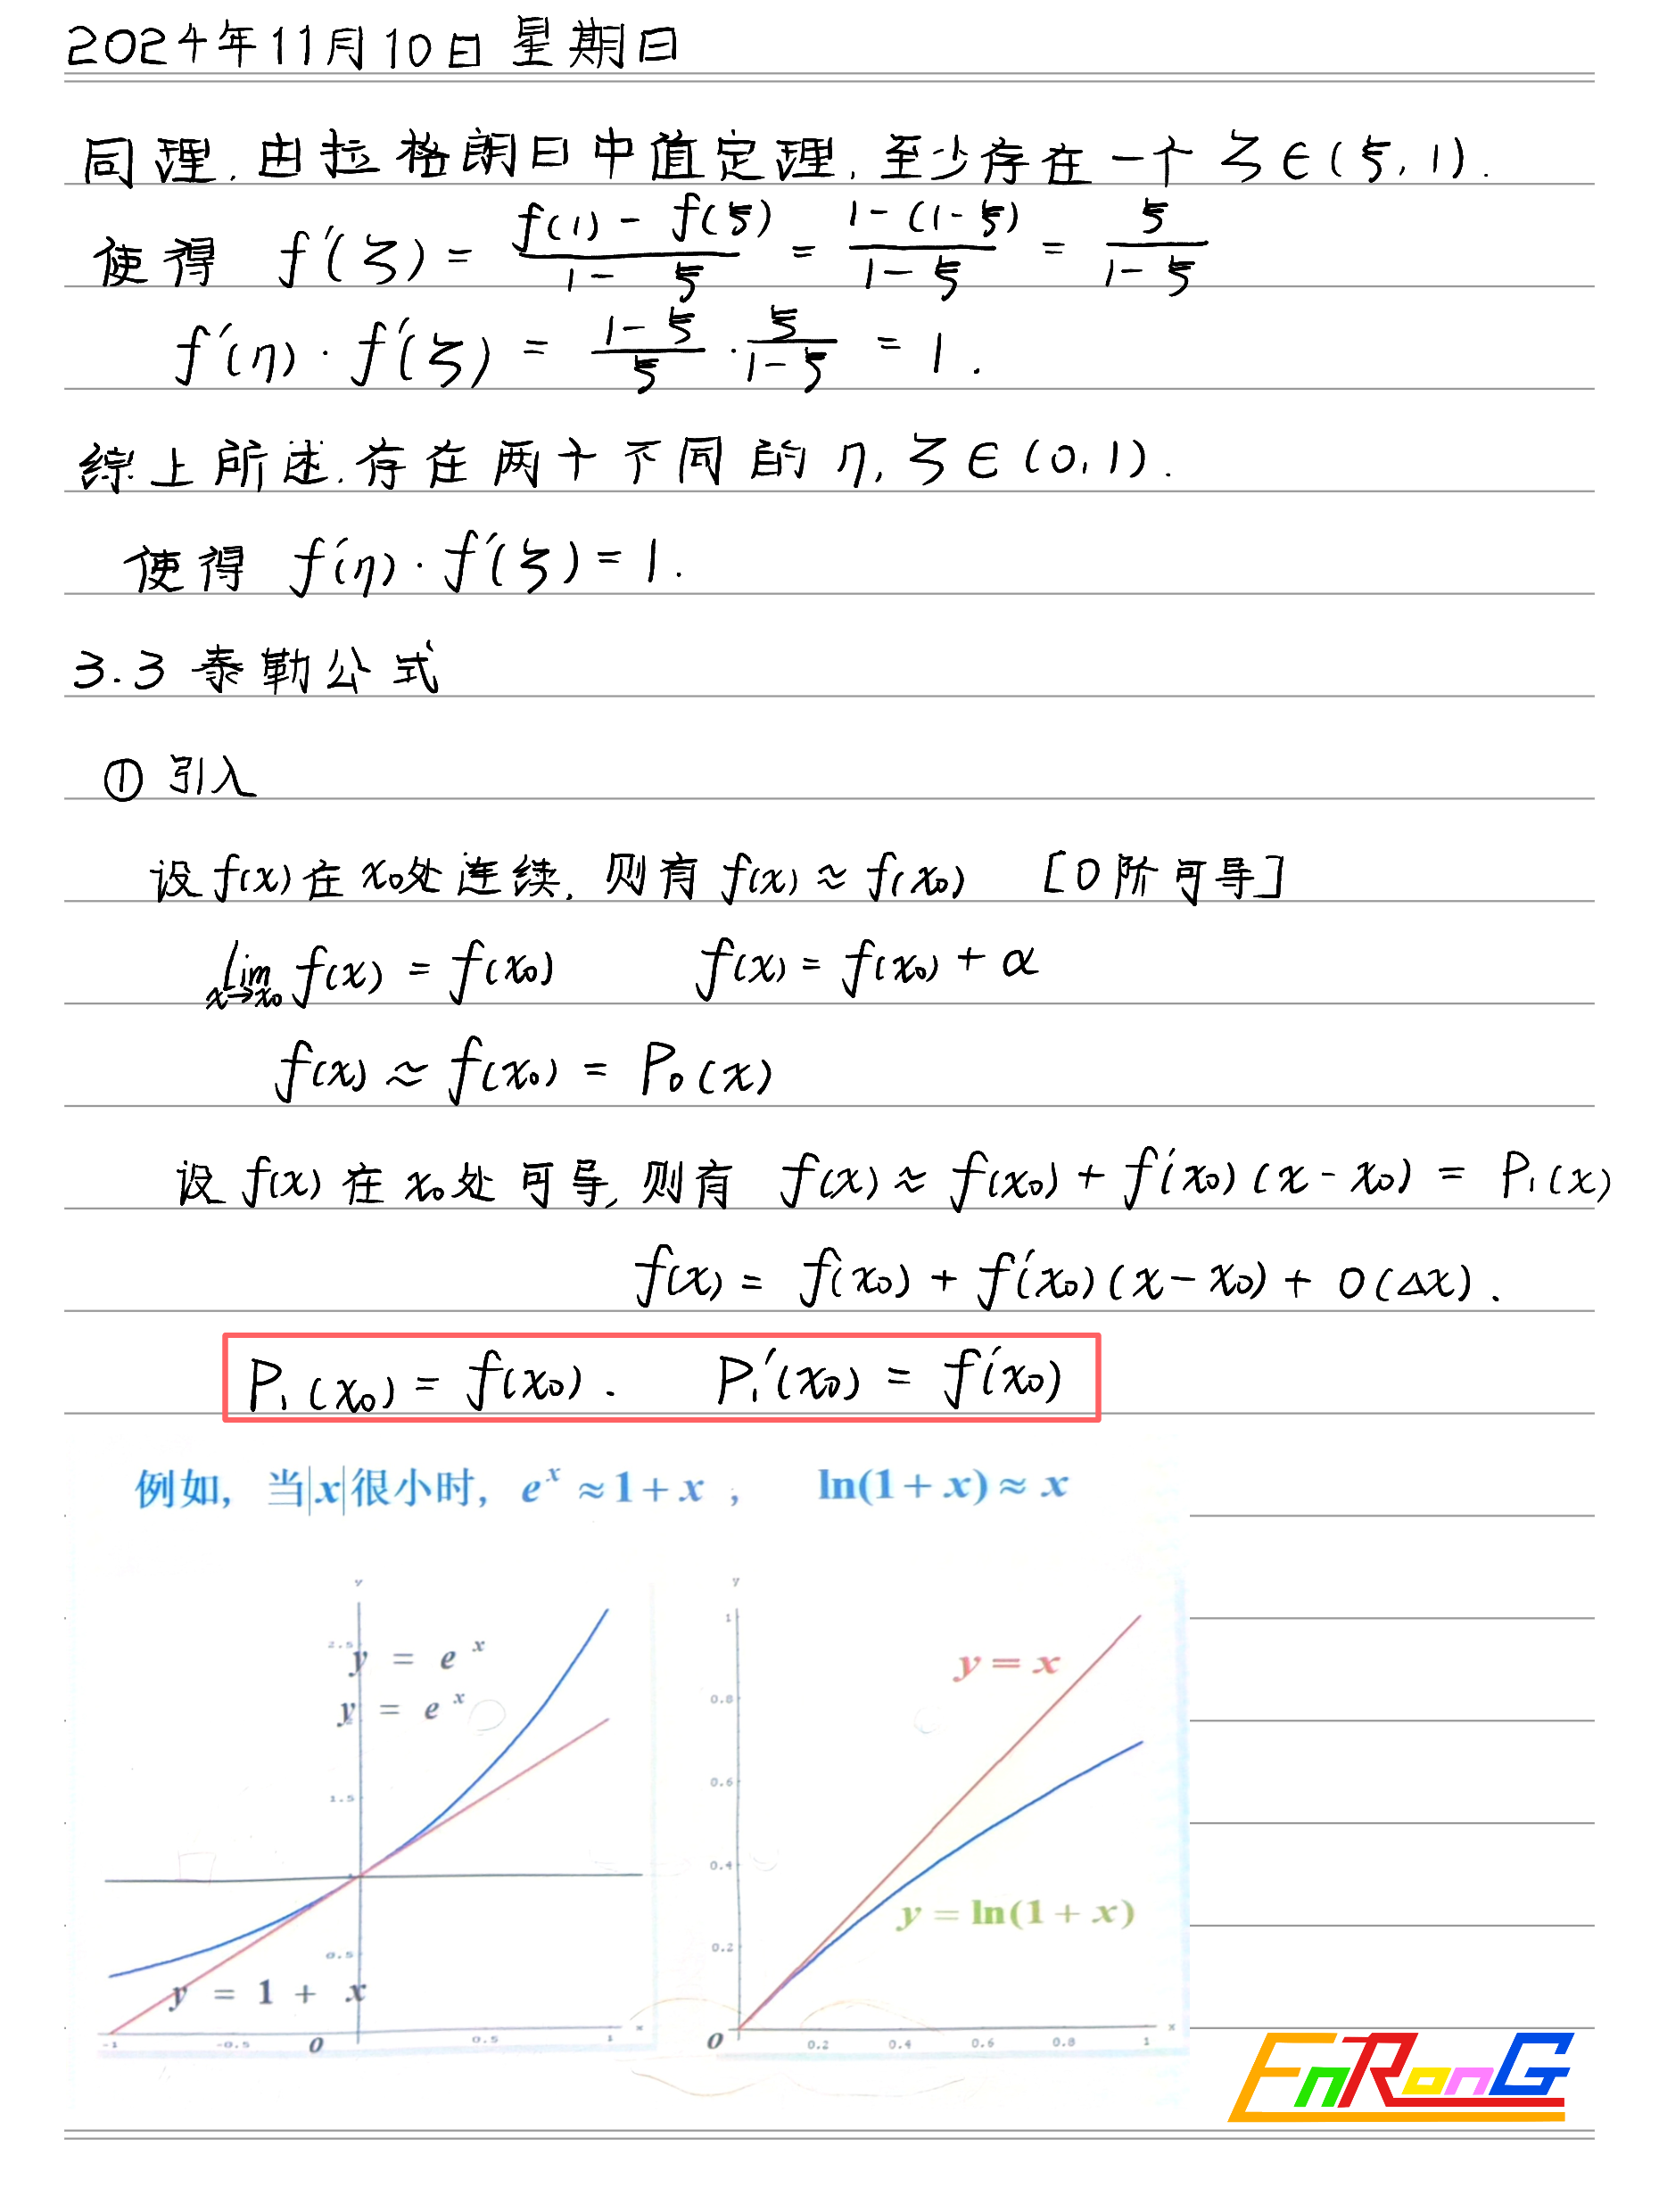 2024年11月10日 星期日
同理,由拉格朗日中值定理,至少存在一个 ζ∈(ξ,1).
使得 f′(ζ) = (f(1) - f(ξ))/(1 - ξ) = (1-(1-ξ))/(1-ξ) = ξ/(1-ξ)
f′(η)·f′(ζ) = (1-ξ)/ξ · ξ/(1-ξ) = 1.
综上所述,存在两个不同的 η,ζ∈(0,1).
使得 f′(η)·f′(ζ)=1.
3.3 泰勒公式
① 引入
设 f(x) 在 x₀处连续, 则有 f(x) ≈ f(x₀) [0阶可导]
lim x→x₀ f(x) = f(x₀) f(x) = f(x₀) + α
f(x) ≈ f(x₀) = P₀(x)
设 f(x) 在 x₀处可导, 则有 f(x) ≈ f(x₀) + f′(x₀)(x-x₀) = P₁(x)
f(x) = f(x₀) + f′(x₀)(x-x₀) + o(Δx).
P₁(x₀) = f(x₀). P₁′(x₀) = f′(x₀)
例如, 当|x|很小时, eˣ ≈ 1 + x , ln(1 + x) ≈ x
y
2.5
y = e ˣ
y = e ˣ
2
1.5
1
0.5
y = 1 + x
-1 -0.5 o 0.5 1 x
y
1
y = x
0.8
0.6
0.4
y = ln(1 + x)
0.2
o 0.2 0.4 0.6 0.8 1 x
EnRonG